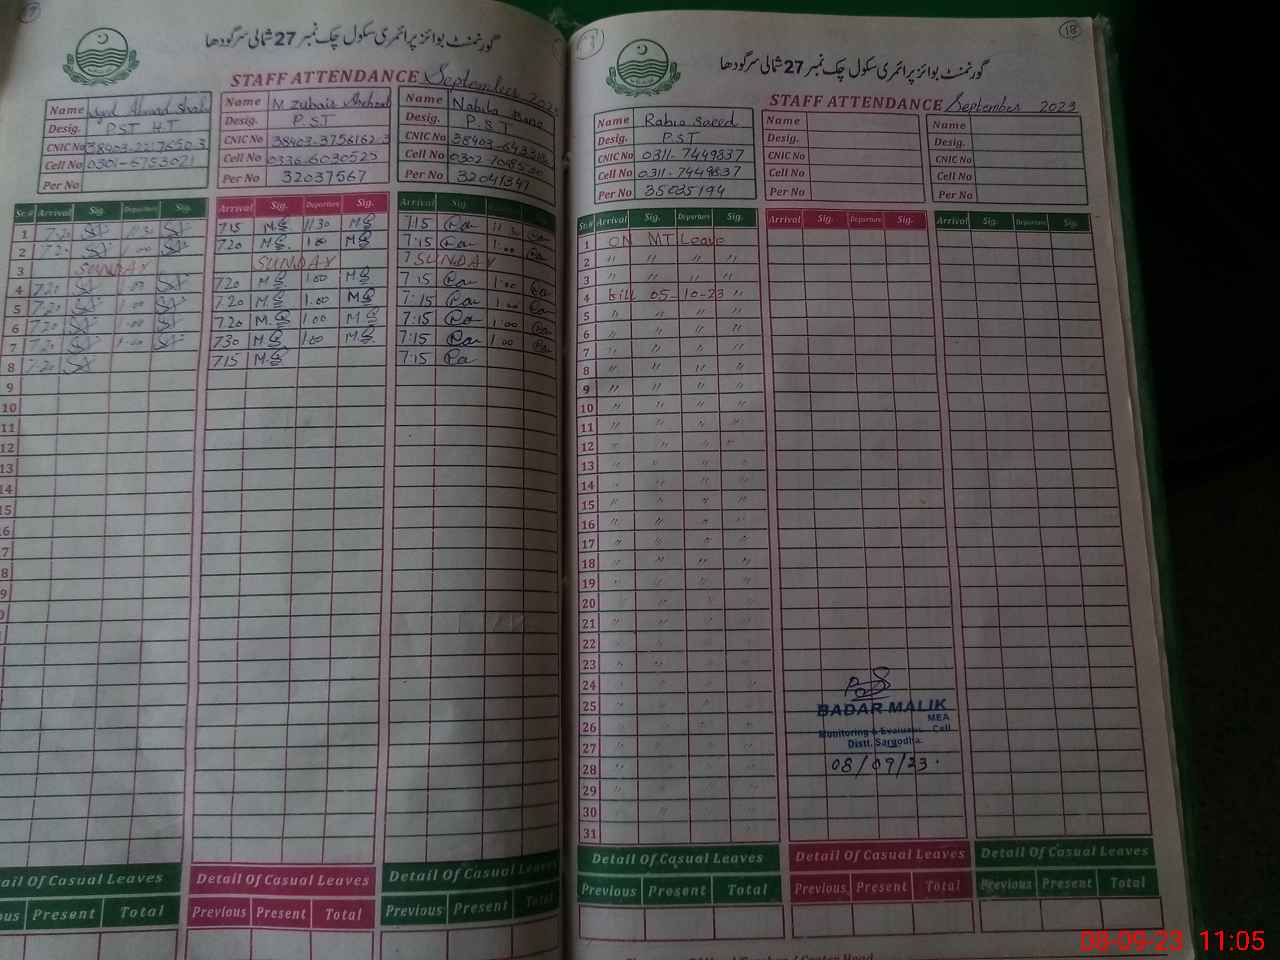 گورنمنٹ بوائز پرائمری سکول چک نمبر 27 شمالی سرگودھا
STAFF ATTENDANCE September
Name Syed Ahmad
Desig. P.S.T H.T
CNIC No
Cell No 0301-6753021
Per No
Name M Zubair Arshad
Desig. P.S.T
CNIC No 38403-3756162-3
Cell No 0336-6030525
Per No 32037567
Name Nabila Bano
Desig. P.S.T
CNIC No
Cell No
Per No 32041347
Sr.# Arrival Sig. Departure Sig. Arrival Sig. Departure Sig. Arrival Sig.
1 7:20 11:30 715 M 11:30 M 7:15 11:30
2 7:20 1:00 720 M 1:00 M 7:15 1:00
3 SUNDAY SUNDAY 7 SUNDAY
4 7:20 1:00 720 M 1:00 M 7:15 1:00
5 7:20 1:00 720 M 1:00 M 7:15 1:00
6 7:20 1:00 720 M 1:00 M 7:15 1:00
7 7:20 1:00 730 M 1:00 M 7:15 1:00
8 7:20 715 M 7:15
9
10
11
12
13
14
15
16
17
18
19
Detail Of Casual Leaves
Present Total
Detail Of Casual Leaves
Previous Present Total
Detail Of Casual Leaves
Previous Present Total
18
گورنمنٹ بوائز پرائمری سکول چک نمبر 27 شمالی سرگودھا
STAFF ATTENDANCE September 2023
Name Rabia Saeed
Desig. P.S.T
CNIC No 0311-7449837
Cell No 0311-7449837
Per No 35035194
Name
Desig.
CNIC No
Cell No
Per No
Name
Desig.
CNIC No
Cell No
Per No
Sr.# Arrival Sig. Departure Sig. Arrival Sig. Departure Sig. Arrival Sig. Departure Sig.
1 ON MT Leave
2 " " " "
3 " " " "
4 till 05-10-23 "
5 " " " "
6 " " " "
7 " " " "
8 " " " "
9 " " " "
10 " " " "
11 " " " "
12 " " " "
13 " " " "
14 " " " "
15 " " " "
16 " " " "
17 " " " "
18 " " " "
19 " " " "
20 " " " "
21 " " " "
22 " " " "
23 " " " "
24 " " " "
25 " " " "
26 " " " "
27 " " " "
28 " " " "
29 " " " "
30 " " " "
31
BADAR MALIK
MEA
Monitoring & Evaluation Cell
Distt. Sargodha
08/09/23
Detail Of Casual Leaves
Previous Present Total
Detail Of Casual Leaves
Previous Present Total
Detail Of Casual Leaves
Previous Present Total
08-09-23 11:05